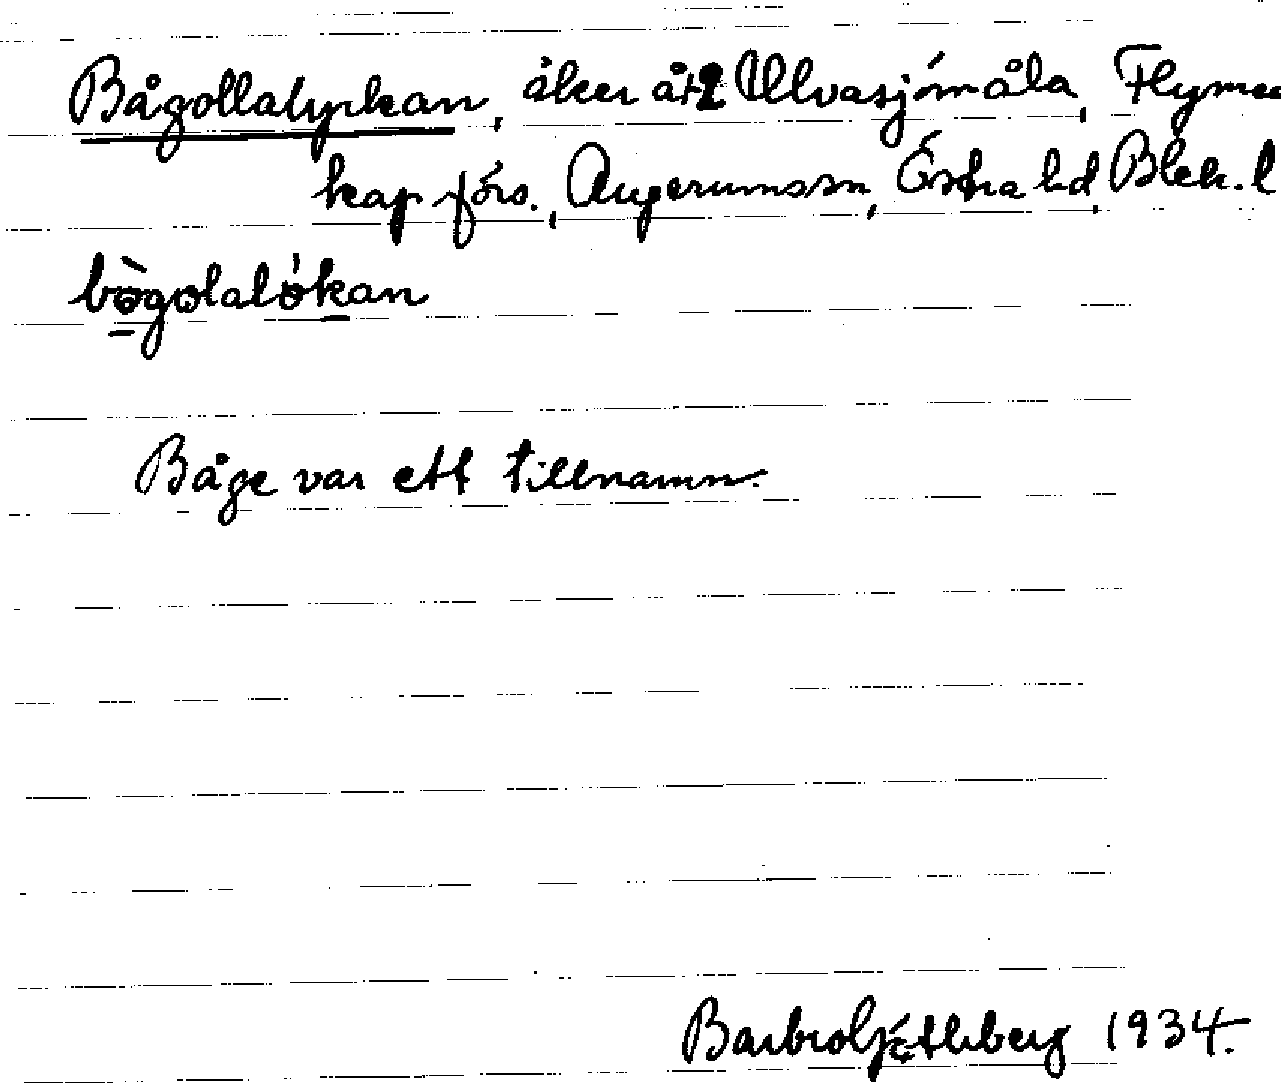 Bågollalyckan, åker åt Ulvasjömåla, Flymen
kap förs., Augerumssn, Östra hd, Blek. l
bògolalókan
Båge var ett tillnamn.
Barbro 1934.